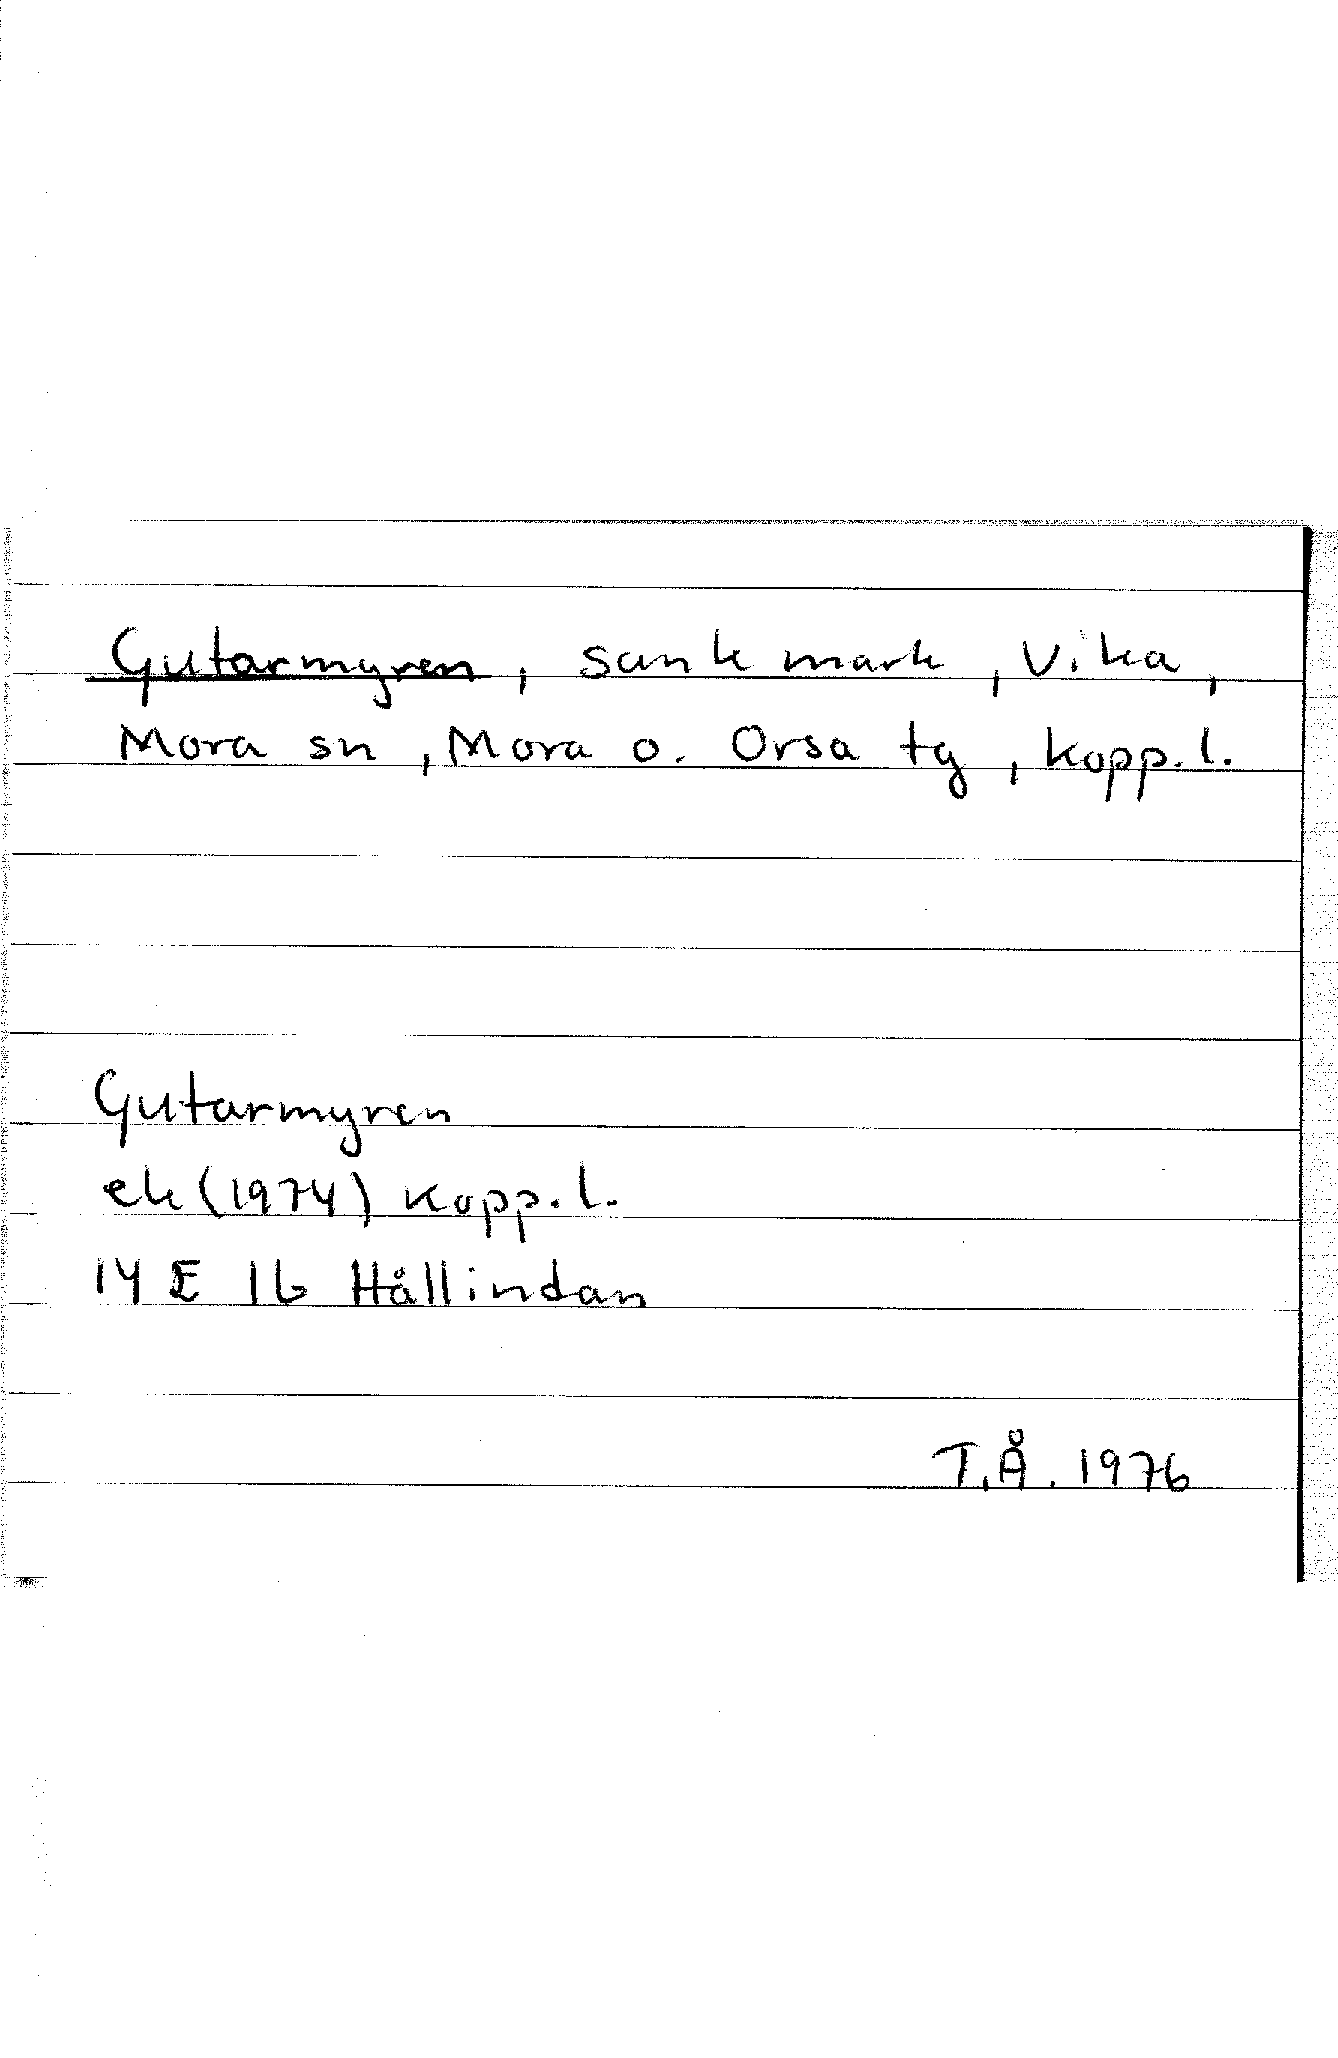 Gutarmyren, sank mark, Vika,
Mora sn, Mora o. Orsa tg, Kopp. l.
Gutarmyren
ek (1974) Kopp. l.
14 E 1b Hållindan
T.Å. 1976